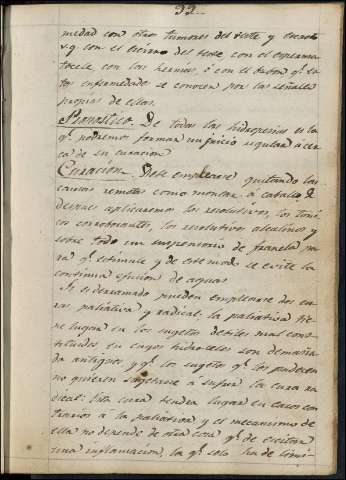 32
medad con otros tumores del teste y escroto
v.g. con el escirro del teste con el esperma-
tocele, con las hernias, ó con el bubon qe. es-
tas enfermedades se conocen por las señales
propias de ellas.
Pronostico. De todas las hidropesias es la
qe. podremos formar un juicio regular acer-
ca de su curacion
Curación. Debe emplearse quitando las
causas remotas como montar á caballo &
despues aplicaremos los resolutivos, los toni-
cos corroborantes, los resolutivos alcalinos y
sobre todo un suspensorio de franela pa-
ra qe. estimule y de este modo se evite la
continua efusion de aguas.
Ya si derramado pueden emplearse dos cu-
ras paliativa y radical: la paliativa tie-
ne lugar en los sugetos debiles mal const-
tituidos en cuyos hidroceles son demasia-
do antiguos y qe. los sugetos qe. los padecen
no quieren sugetarse á sufrir la cura ra-
dical: Esta cura tendra lugar en casos con-
trarios á la paliativa y el mecanismo de
ella no depende de otra cosa qe. de escitar
una inflamacion, la qe. solo ha de limi-